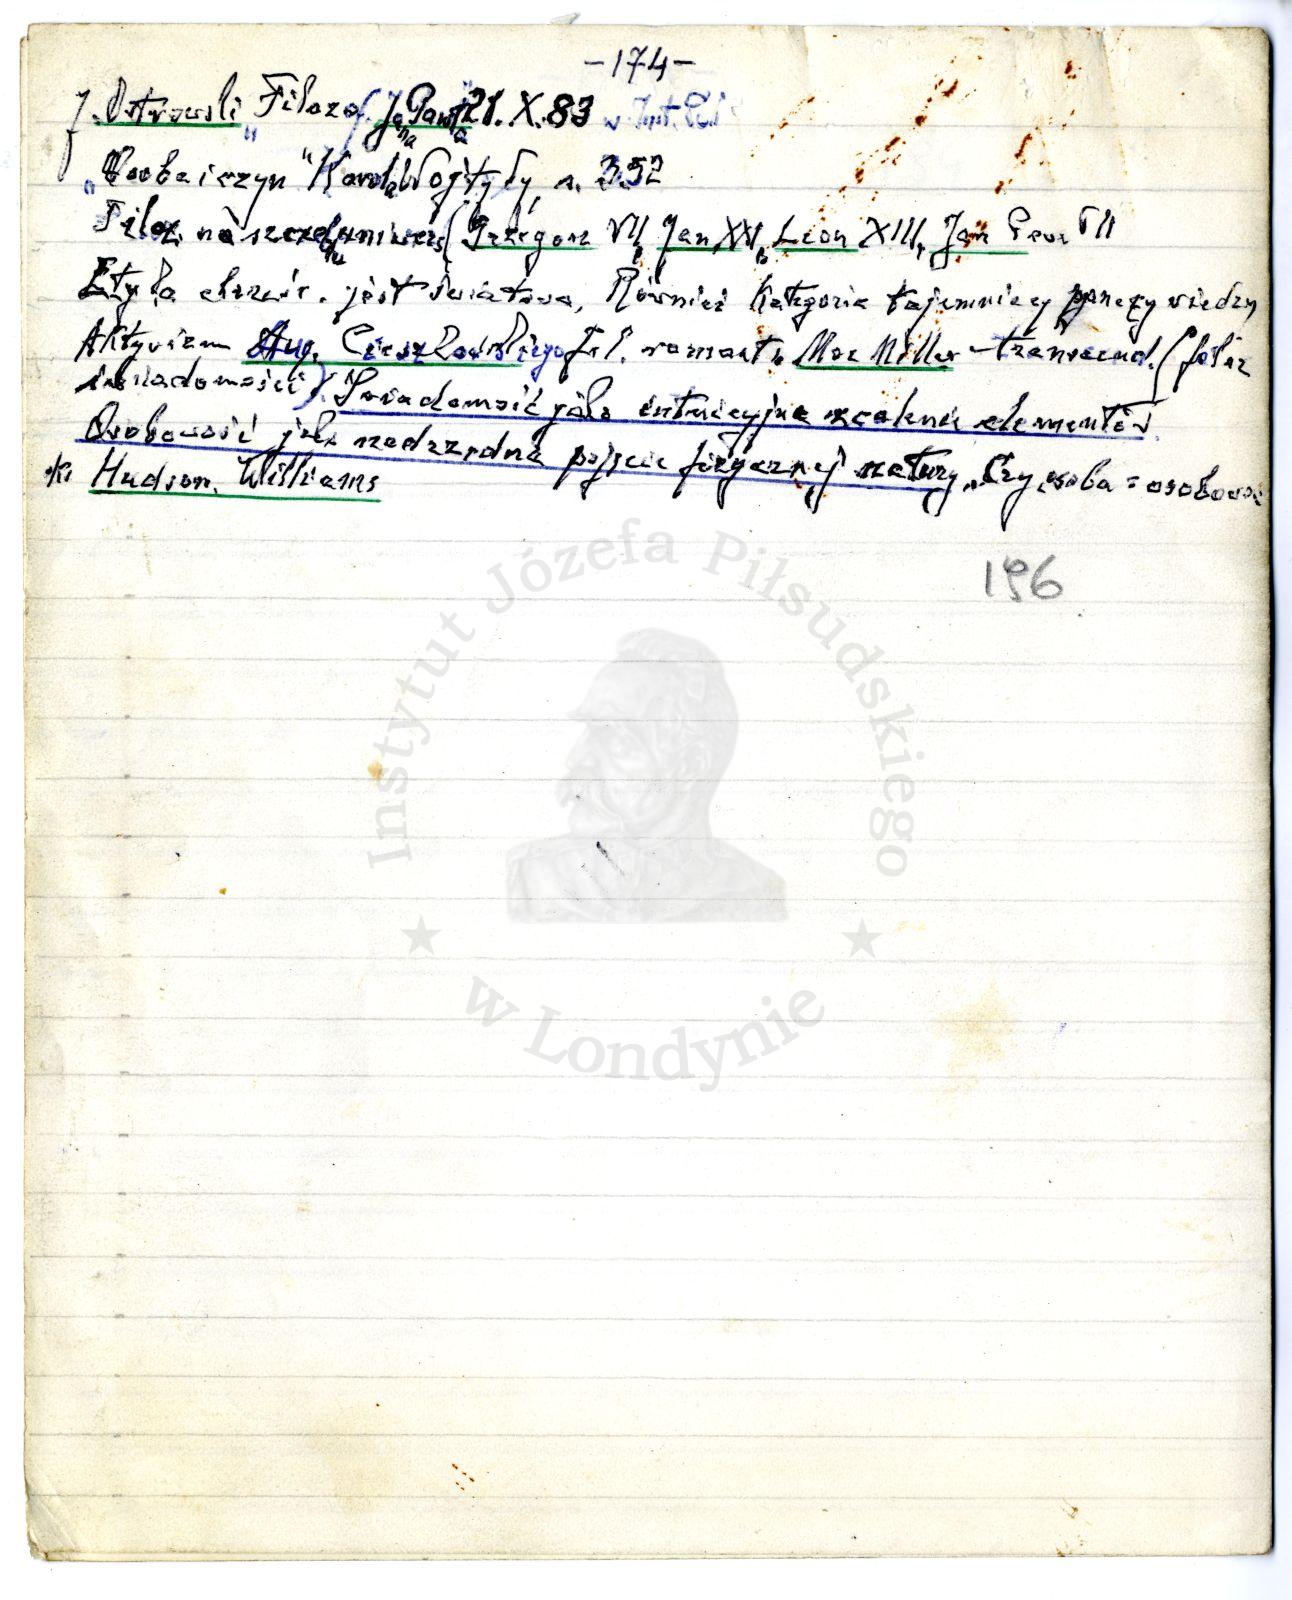 -174-
J. Ostrowski „Filozof. Jana Pawła" 21. X. 83 w Inst. Pol
„Osoba i czyn" Karola Wojtyły, s. 352
Filoz. na szczeblu uniwers (Grzegorz VII, Jan XXI, Leon XIII, Jan Paweł II
Etyka chrześc. jest światowa, Również kategoria tajemnicy wiedzy
Aktywizm Aug. Cieszkowskiego fil. romant. Max Müller - transcend. (
świadomości). Świadomość jako intuicyjne scalenie elementów.
Osobowość jako nadrzędne pojęcie fizycznej natury. Czy osoba = osobowość
Hudson. Williams
196
Instytut Józefa Piłsudskiego
w Londynie